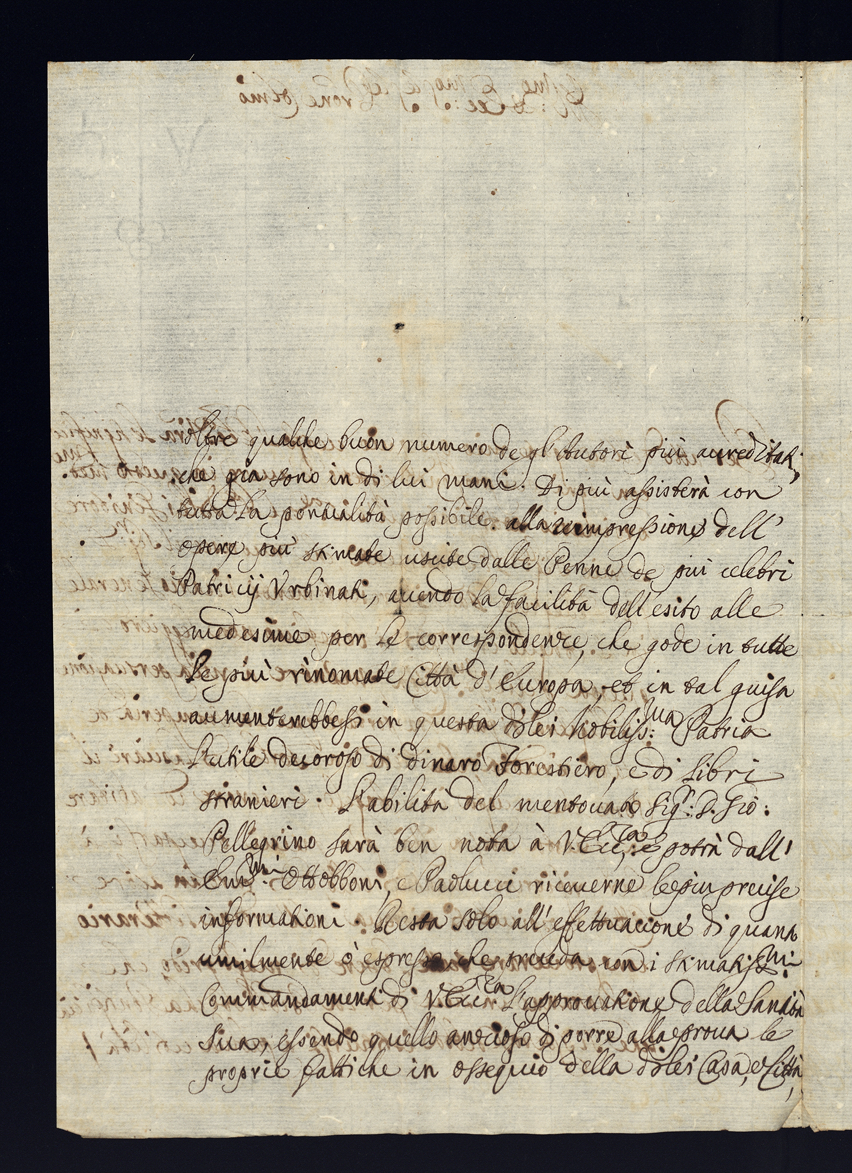 oltre qualche buon numero de gl'Autori più accreditati,
che già sono in di lui mani. Di più assisterà con
tutta la pontualità possibile alla reimpressione dell'
opere più stimate uscite dalle Penne de più celebri
Patricij Vrbinati, auendo la facilità dell'esito alle
medesime per le corrispondenze, che gode in tutte
le più rinomate Città d'Europa, et in tal guisa
aumenterebbesi in questa di lei Nobiliss:ma Patria
l'utile decoroso di dinaro forestiero, e di libri
stranieri. L'abilità del mentouato Sig:r D. Gio:
Pellegrino sarà ben nota à V. Ecc:za e potrà dall'
Emi:mi Ottobboni, e Paolucci riceuerne le più precise
informationi. Resta solo all'effettuacione di quanto
umilmente ò espresso che proceda con i stimatiss:mi
Commandamenti di V. Ecc:za l'approuatione della Santità
Sua, essendo quello ancioso di porre alla proua le
proprie fattiche in ossequio della di lei Casa, e Città,